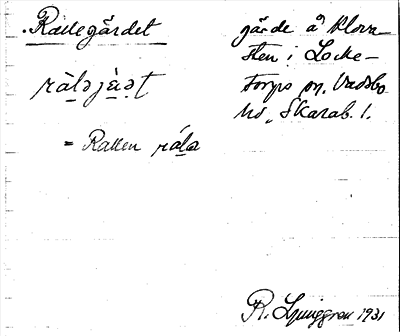 Rallegärdet
ràləjæ̀ət
= Rallen rálə
gärde å Klova-
sten i Locke-
torps sn. Vadsbo
hd., Skarab. l.
R. Ljunggren 1931